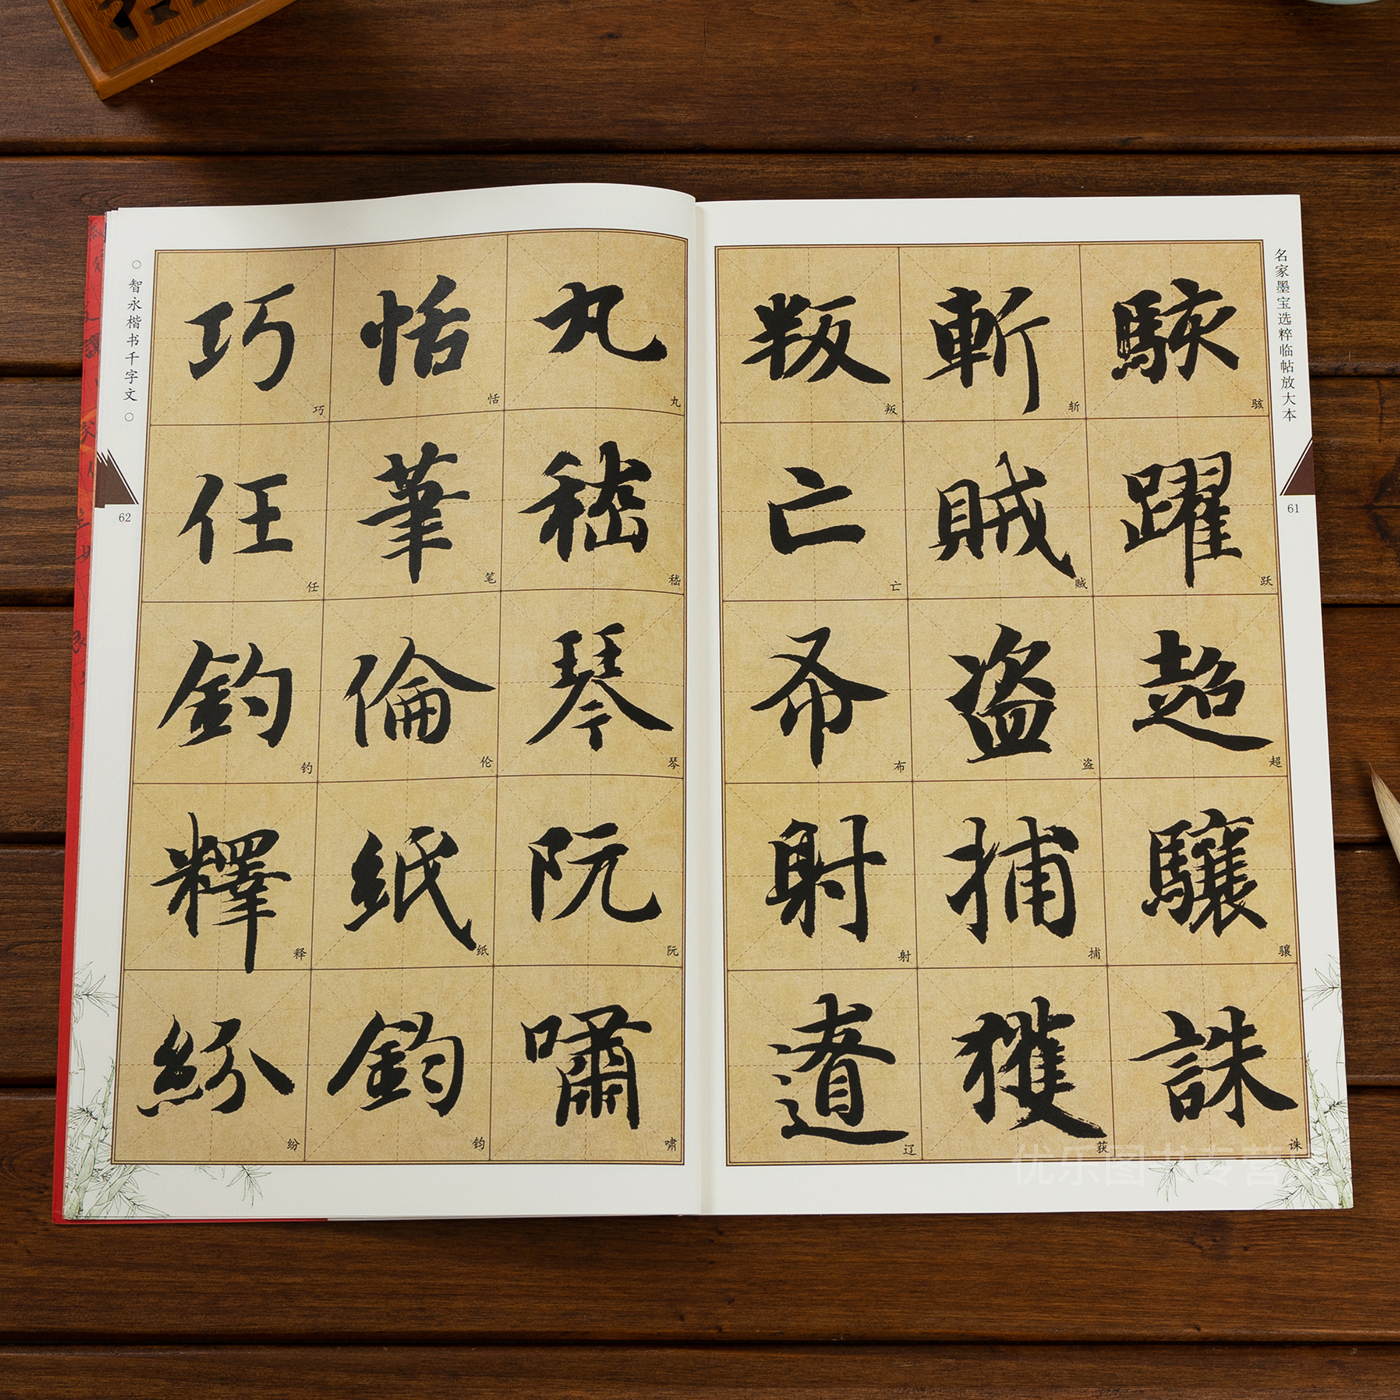 名家墨宝选粹临帖放大本
61
駭躍超驤誅
骇跃超骧诛
斬賊盜捕獲
斩贼盗捕获
叛亡布射遼
叛亡布射辽
丸嵇琴阮嘯
丸嵇琴阮啸
恬筆倫紙鈞
恬笔伦纸钧
巧任釣釋紛
巧任钓释纷
○智永楷书千字文○
62
优乐图书专营